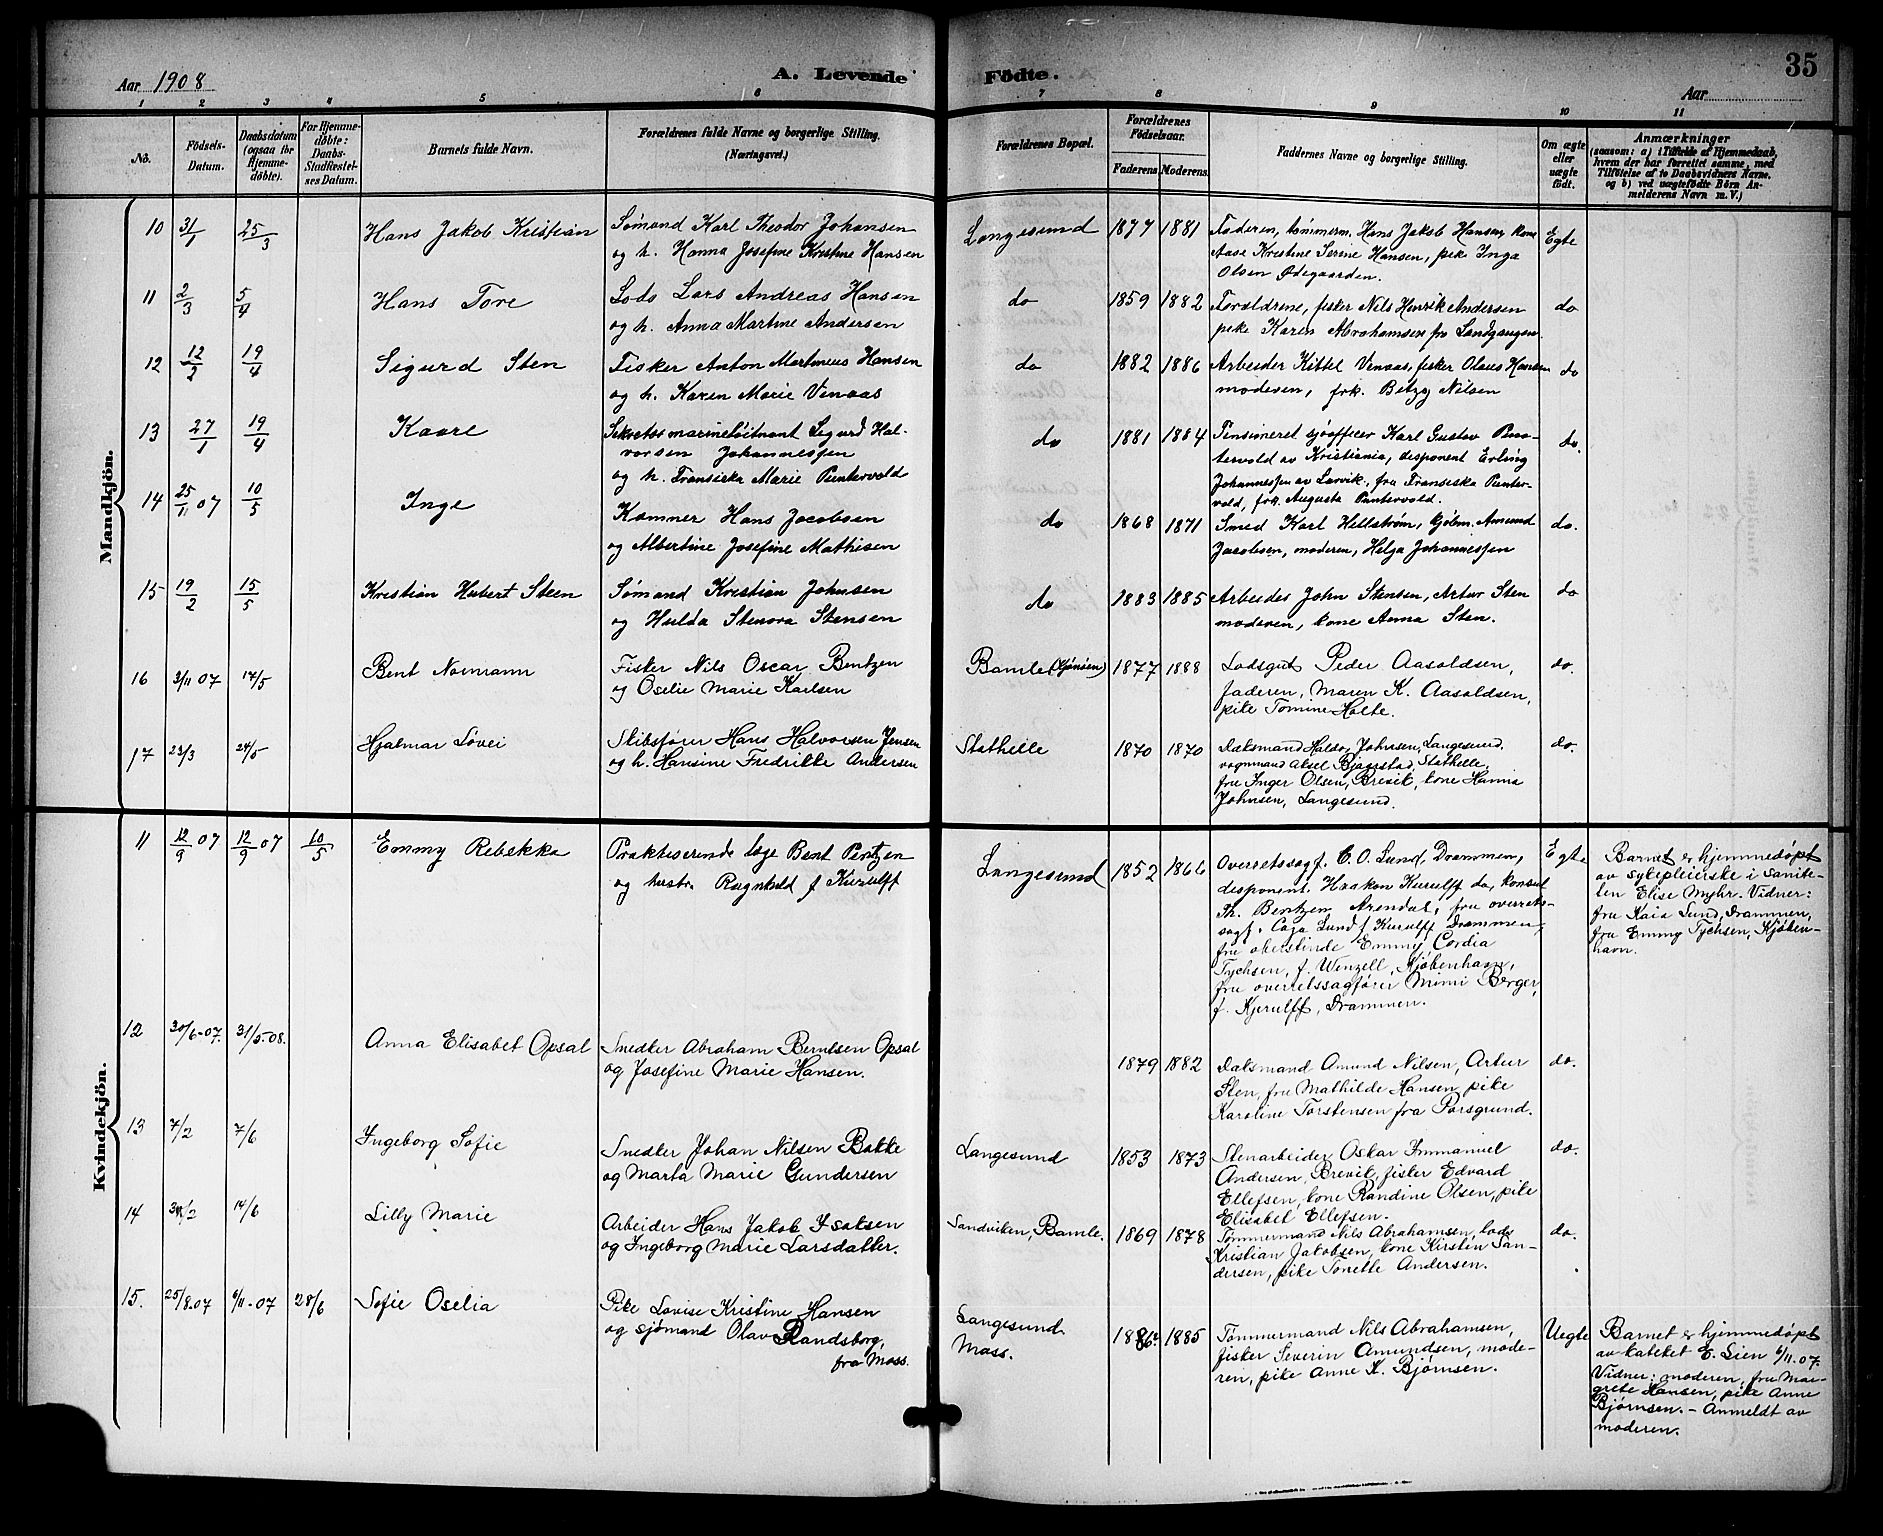 35
Aar 1908
A. Levende
Födte.
Aar
1 2 3 4 5 6 7 8 9 10 11
No.
Födsels-
Datum.
Daabsdatum
(ogsaa for
Hjemme-
döbte).
For Hjemme-
döbte:
Daabs-
Stadfæstel-
ses Datum.
Barnets fulde Navn.
Forældrenes fulde Navne og borgerlige Stilling.
(Næringsvei.)
Forældrenes Bopæl.
Forældrenes
Födselsaar.
Faderens. Moderens.
Faddernes Navne og borgerlige Stilling.
Om ægte
eller
uægte
födt.
Anmærkninger
(saasom: a) i Tilfælde af Hjemmedaab,
hvem der har forrettet samme, med
Tilföielse af to Daabsvidners Navne,
og b) ved uægtefödte Börn An-
melderens Navn m. V.)
Mandkjön.
10 31/1 25/3 Hans Jakob Kristian
Sømand Karl Theodor Johansen
og h. Hanna Josefine Kristine Hansen
Langesund 1877 1881
Faderen, tømmerm. Hans Jakob Hansen, kone
Aase Kristine Serine Hansen, pike Inga
Olsen Ødegaarden.
Egte
11 2/3 5/4 Hans Tore
Lods Lars Andreas Hansen
og h. Anna Martine Andersen
do 1859 1882
Forældrene, fisker Nils Henrik Andersen
pike Karen Abrahamsen fra Landgangen
do
12 12/2 19/4 Sigurd Sten
Fisker Anton Martinius Hansen
og h. Karen Marie Vinaas
do 1882 1886
Arbeider Kittel Vinaas, fisker Olaus Hansen
moderen, frk. Betzy Nilsen
do
13 27/1 19/4 Kaare
Sekretær marineløitnant Sigurd Hal-
vorsen Johannessen
og h. Fransiska Marie Puntervold
do 1881 1884
Pensioneret sjøofficer Karl Gustav Pun-
tervold av Kristiania, disponent Erling
Johannessen av Larvik, fru Fransiska Punter-
vold, frk. Augusta Puntervold.
do.
14 25/11 07 10/5 Inge
Kæmner Hans Jacobsen
og Albertine Josefine Mathisen
do 1868 1871
Smed Karl Hellstrøm, kjøbm. Amund
Jacobsen, moderen, Helga Johannessen
do.
15 19/2 15/5 Kristian Hubert Steen
Sømand Kristian Johnsen
og Hulda Stenora Stensen
do 1883 1885
Arbeider John Stensen, Artur Sten
moderen, kone Anna Sten.
do
16 3/11 07 17/5 Bent Normann
Fisker Nils Oscar Bentzen
og Oselie Marie Karlsen
Bamle 1877 1888
Lodsgut Peder Aasoldsen,
faderen, Maren K. Aasoldsen,
pike Tomine Halte.
do.
17 23/3 24/5 Hjalmar Løvei
Skibsfører Hans Halvorsen Jensen
og h. Hansine Fredrikke Andersen
Stathelle 1870 1870
Dæksmand Haldor Johnsen, Langesund.
vognmand Aksel Bjaastad, Stathelle,
fru Inger Olsen, Brevik, kone Hanna
Johnsen, Langesund.
do.
Kvindekjön.
11 12/9 07 12/9 07 10/5 Emmy Rebekka
Praktiserende læge Bent Bentzen
og hustr. Ragnhild f Kierulff
Langesund 1852 1866
Overretssagf. C. O. Lund, Drammen,
disponent Haakon Kierulff do, konsul
Th. Bentzen Arendal, fru overrets-
sagf. Caja Lund f Kierulff Drammen,
fru oberstinde Emmy Cordia
Tychsen, f. Wenzell, Kjøbenhavn,
fru overretssagfører Mimi Berger
f. Kjerulff, Drammen.
Egte
Barnet er hjemmedøpt
av sykepleierske i sanite-
ten Elise Myhr. Vidner:
fru Kaia Lund, Drammen,
fru Emmy Tychsen, Kjøben-
havn.
12 30/6-07. 31/5-08. Anna Elisabet Opsal
Snedker Abraham Berntsen Opsal
og Josefine Marie Hansen.
1879 1882
Dæksmand Amund Nilsen, Artur
Sten, fru Mathilde Hansen, pike
Karoline Torstensen fra Porsgrund.
do.
13 7/2 7/6 Ingeborg Sofie
Snedker Johan Nilsen Bakke
og Marta Marie Gundersen
Langesund 1853 1873
Stenarbeider Oskar Immanuel
Andersen, Brevik, fisker Edvard
Ellefsen, kone Randine Olsen, pike
Elisabet Ellefsen.
do.
14 14/6 Lilly Marie
Arbeider Hans Jakob Isaksen
og Ingeborg Marie Larsdatter.
Sandviken, Bamle. 1869 1878
Tømmermand Nils Abrahamsen, lods
Kristian Jakobsen, kone Kirsten San-
dersen, pike Tonette Andersen.
do.
15. 25/8.07 6/11-07 28/6 Sofie Oselia
Pike Lovise Kristine Hansen
og sjømand Olav Randsborg,
fra Moss.
Langesund
Moss. 1886 1885
Tømmermand Nils Abrahamsen,
fisker Severin Amundsen, mode-
ren, pike Anne K. Bjørnsen.
Uegte
Barnet er hjemmedøpt
av kateket E. Lien 6/11-07.
Vidner: moderen, fru Mar-
grete Hansen, pike Anne
Bjørnsen. - Anmeldt av
moderen.